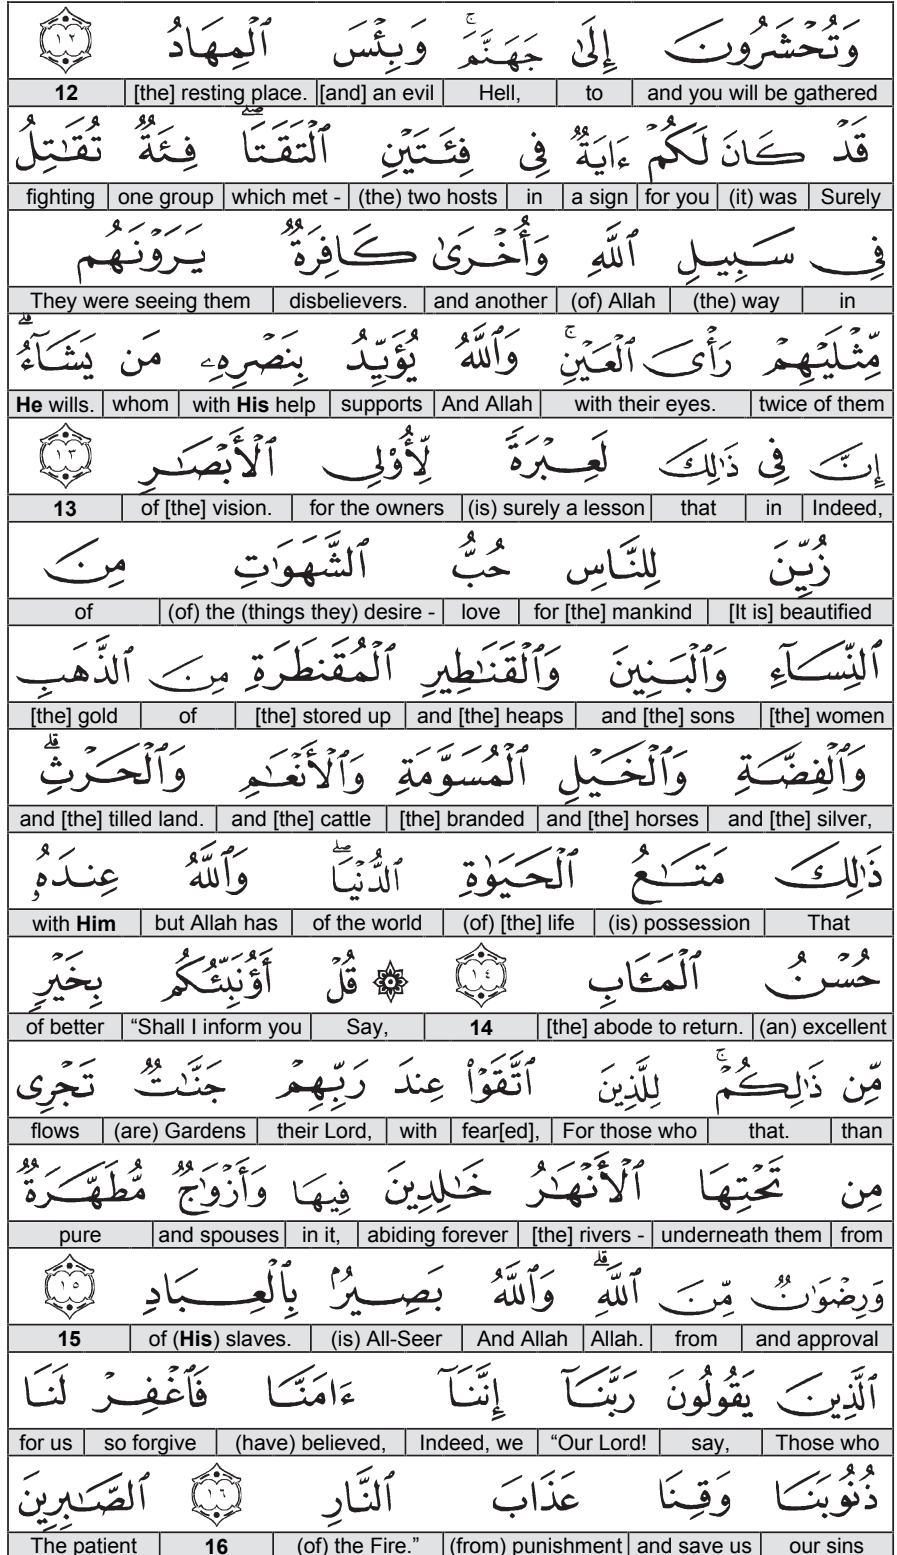 وَتُحْشَرُونَ إِلَىٰ جَهَنَّمَ ۚ وَبِئْسَ ٱلْمِهَادُ ١٢
and you will be gathered to Hell, [and] an evil [the] resting place. 12
قَدْ كَانَ لَكُمْ ءَايَةٌ فِى فِئَتَيْنِ ٱلْتَقَتَا ۖ فِئَةٌ تُقَـٰتِلُ
Surely (it) was for you a sign in (the) two hosts which met - one group fighting
فِى سَبِيلِ ٱللَّهِ وَأُخْرَىٰ كَافِرَةٌ يَرَوْنَهُم
in (the) way (of) Allah and another disbelievers. They were seeing them
مِّثْلَيْهِمْ رَأْىَ ٱلْعَيْنِ ۚ وَٱللَّهُ يُؤَيِّدُ بِنَصْرِهِۦ مَن يَشَآءُ ۗ
twice of them with their eyes. And Allah supports with His help whom He wills.
إِنَّ فِى ذَٰلِكَ لَعِبْرَةً لِّأُو۟لِى ٱلْأَبْصَـٰرِ ١٣
Indeed, in that (is) surely a lesson for the owners of [the] vision. 13
زُيِّنَ لِلنَّاسِ حُبُّ ٱلشَّهَوَٰتِ مِنَ
[It is] beautified for [the] mankind love (of) the (things they) desire - of
ٱلنِّسَآءِ وَٱلْبَنِينَ وَٱلْقَنَـٰطِيرِ ٱلْمُقَنطَرَةِ مِنَ ٱلذَّهَبِ
[the] women and [the] sons and [the] heaps [the] stored up of [the] gold
وَٱلْفِضَّةِ وَٱلْخَيْلِ ٱلْمُسَوَّمَةِ وَٱلْأَنْعَـٰمِ وَٱلْحَرْثِ ۗ
and [the] silver, and [the] horses [the] branded and [the] cattle and [the] tilled land.
ذَٰلِكَ مَتَـٰعُ ٱلْحَيَوٰةِ ٱلدُّنْيَا ۖ وَٱللَّهُ عِندَهُۥ
That (is) possession (of) [the] life of the world but Allah has with Him
حُسْنُ ٱلْمَـَٔابِ ١٤ ۞ قُلْ أَؤُنَبِّئُكُم بِخَيْرٍ
(an) excellent [the] abode to return. 14 Say, “Shall I inform you of better
مِّن ذَٰلِكُمْ ۚ لِلَّذِينَ ٱتَّقَوْا۟ عِندَ رَبِّهِمْ جَنَّـٰتٌ تَجْرِى
than that. For those who fear[ed], with their Lord, (are) Gardens flows
مِن تَحْتِهَا ٱلْأَنْهَـٰرُ خَـٰلِدِينَ فِيهَا وَأَزْوَٰجٌ مُّطَهَّرَةٌ
from underneath them [the] rivers - abiding forever in it, and spouses pure
وَرِضْوَٰنٌ مِّنَ ٱللَّهِ ۗ وَٱللَّهُ بَصِيرٌۢ بِٱلْعِبَادِ ١٥
and approval from Allah. And Allah (is) All-Seer of (His) slaves. 15
ٱلَّذِينَ يَقُولُونَ رَبَّنَآ إِنَّنَآ ءَامَنَّا فَٱغْفِرْ لَنَا
Those who say, “Our Lord! Indeed, we (have) believed, so forgive for us
ذُنُوبَنَا وَقِنَا عَذَابَ ٱلنَّارِ ١٦ ٱلصَّـٰبِرِينَ
our sins and save us (from) punishment (of) the Fire.” 16 The patient